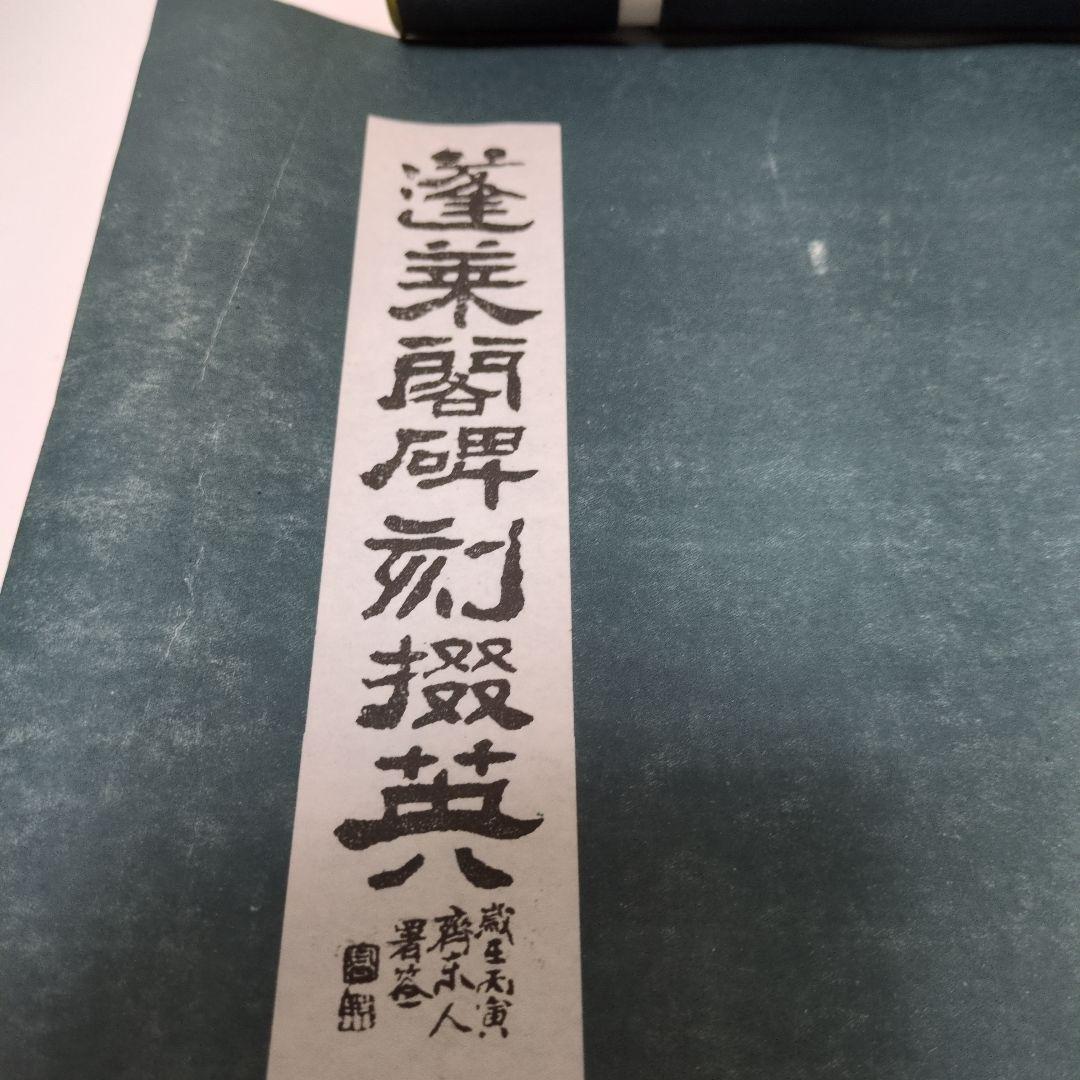 蓬萊閣碑刻掇英
歲在丙寅
齊東人
署簽